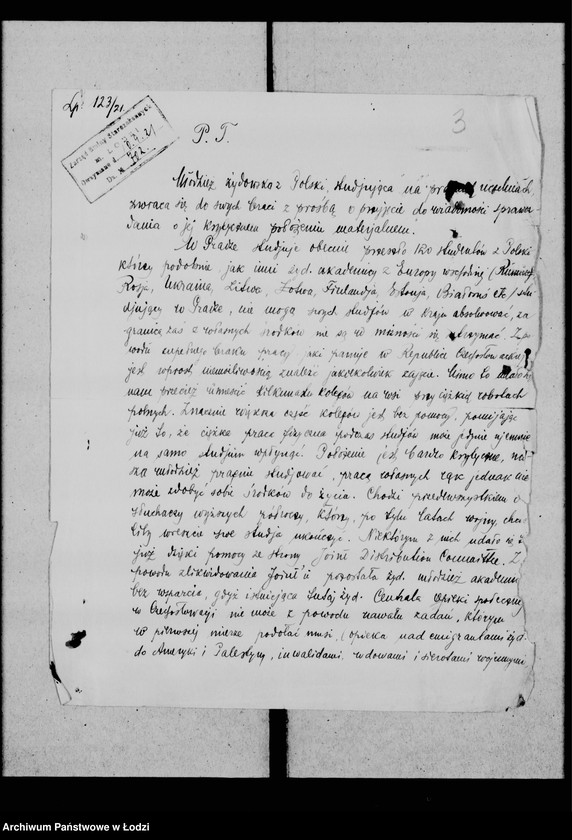 Lp. 123/21.
3
Zarząd Gminy Starozakonnych
m. ŁODZI
Otrzymano d. 8.4.21
Dz. № 392.
P. T.
Młodzież żydowska z Polski, studjująca na uczelniach
zwraca się do swych braci z prośbą o przyjęcie do wiadomości sprawoz-
dania o jej krytycznem położeniu materjalnem.
W Pradze studjuje obecnie przeszło 120 studentów z Polski
którzy podobnie, jak inni żyd. akademicy z Europy wschodniej (Rumunja,
Rosja, Ukraina, Litwa, Łotwa, Finlandja, Estonja, Białoruś etc) stu-
djujący w Pradze, nie mogą swych studjów w kraju absolwować, za
granicą zaś z własnych środków nie są w możności się utrzymać. Z po-
wodu zupełnego braku pracy jaki panuje w Republice Czechosłowackiej
jest wprost niemożliwością znaleźć jakiekolwiek zajęcie. Mimo to udało się
nam przecież umieścić kilkunastu kolegów na wsi przy ciężkich robotach
polnych. Znacznie większa część kolegów jest bez pomocy, pomijając
już to, że ciężka praca fizyczna podczas studjów może jedynie ujemnie
na samo studjum wpłynąć. Położenie jest bardzo krytyczne, na-
sza młodzież pragnie studjować, pracą własnych rąk jednak nie
może zdobyć sobie środków do życia. Chodzi przedewszystkiem o
słuchaczy wyższych półroczy, którzy, po tylu latach wojny, chcie-
liby wreszcie swe studja ukończyć. Niektórym z nich udało się to
już dzięki pomocy ze strony Joint Distribution Committee. Z
powodu zlikwidowania Joint'u pozostała żyd. młodzież akadem.
bez wsparcia, gdyż istniejąca tutaj żyd. Centrala opieki społecznej
w Czechosłowacji nie może z powodu nawału zadań, którym
w pierwszej mierze podołać musi, (opieka nad emigrantami żyd.
do Ameryki i Palestyny, inwalidami, wdowami i sierotami wojennymi
Archiwum Państwowe w Łodzi